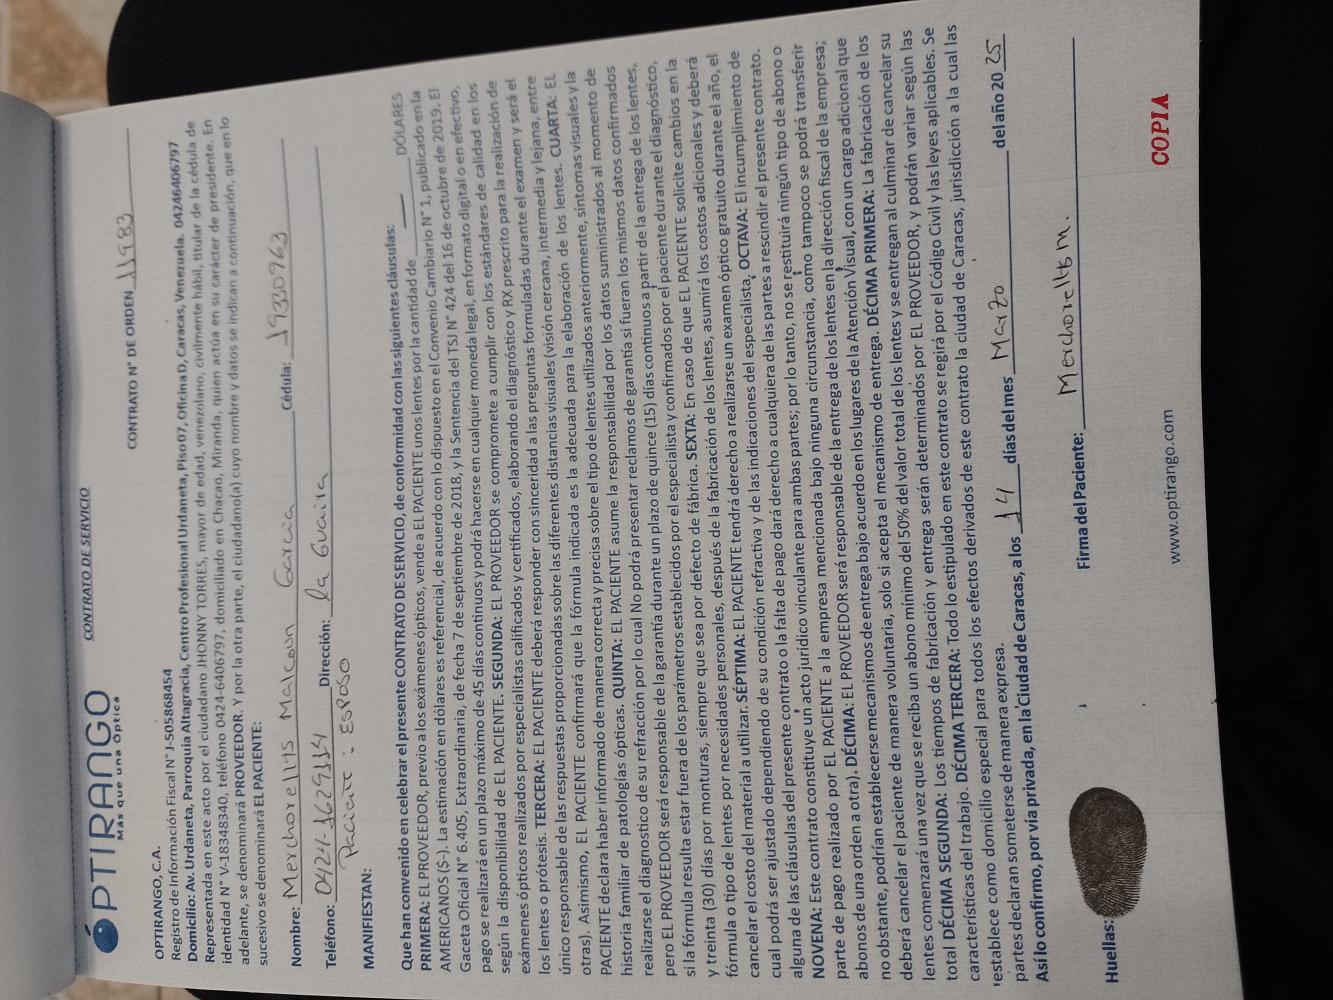 OPTIRANGO
Más que una Óptica
CONTRATO DE SERVICIO
CONTRATO N° DE ORDEN 11983
OPTIRANGO, C.A.
Registro de Información Fiscal N° J-505868454
Domicilio: Av. Urdaneta, Parroquia Altagracia, Centro Profesional Urdaneta, Piso 07, Oficina D, Caracas, Venezuela. 04246406797
Representada en este acto por el ciudadano JHONNY TORRES, mayor de edad, venezolano, civilmente hábil, titular de la cédula de
identidad N° V-18348340, teléfono 0424-6406797, domiciliado en Chacao, Miranda, quien actúa en su carácter de presidente. En
adelante, se denominará PROVEEDOR. Y por la otra parte, el ciudadano(a) cuyo nombre y datos se indican a continuación, que en lo
sucesivo se denominará EL PACIENTE:
Nombre: Merchorelits Malcoun Garcia Cédula: 19330963
Teléfono: 0424-1629114 Dirección: la Guaira
Paciente: Esposo
MANIFIESTAN:
Que han convenido en celebrar el presente CONTRATO DE SERVICIO, de conformidad con las siguientes cláusulas:
PRIMERA: EL PROVEEDOR, previo a los exámenes ópticos, vende a EL PACIENTE unos lentes por la cantidad de DÓLARES
AMERICANOS ($-). La estimación en dólares es referencial, de acuerdo con lo dispuesto en el Convenio Cambiario N° 1, publicado en la
Gaceta Oficial N° 6.405, Extraordinaria, de fecha 7 de septiembre de 2018, y la Sentencia del TSJ N° 424 del 16 de octubre de 2019. El
pago se realizará en un plazo máximo de 45 días continuos y podrá hacerse en cualquier moneda legal, en formato digital o en efectivo,
según la disponibilidad de EL PACIENTE. SEGUNDA: EL PROVEEDOR se compromete a cumplir con los estándares de calidad en los
exámenes ópticos realizados por especialistas calificados y certificados, elaborando el diagnóstico y RX prescrito para la realización de
los lentes o prótesis. TERCERA: EL PACIENTE deberá responder con sinceridad a las preguntas formuladas durante el examen y será el
único responsable de las respuestas proporcionadas sobre las diferentes distancias visuales (visión cercana, intermedia y lejana, entre
otras). Asimismo, EL PACIENTE confirmará que la fórmula indicada es la adecuada para la elaboración de los lentes. CUARTA: EL
PACIENTE declara haber informado de manera correcta y precisa sobre el tipo de lentes utilizados anteriormente, síntomas visuales y la
historia familiar de patologías ópticas. QUINTA: EL PACIENTE asume la responsabilidad por los datos suministrados al momento de
realizarse el diagnostico de su refracción por lo cual No podrá presentar reclamos de garantía si fueran los mismos datos confirmados
pero EL PROVEEDOR será responsable de la garantía durante un plazo de quince (15) días continuos a partir de la entrega de los lentes,
si la fórmula resulta estar fuera de los parámetros establecidos por el especialista y confirmados por el paciente durante el diagnóstico,
y treinta (30) días por monturas, siempre que sea por defecto de fábrica. SEXTA: En caso de que EL PACIENTE solicite cambios en la
fórmula o tipo de lentes por necesidades personales, después de la fabricación de los lentes, asumirá los costos adicionales y deberá
cancelar el costo del material a utilizar. SÉPTIMA: EL PACIENTE tendrá derecho a realizarse un examen óptico gratuito durante el año, el
cual podrá ser ajustado dependiendo de su condición refractiva y de las indicaciones del especialista. OCTAVA: El incumplimiento de
alguna de las cláusulas del presente contrato o la falta de pago dará derecho a cualquiera de las partes a rescindir el presente contrato.
NOVENA: Este contrato constituye un acto jurídico vinculante para ambas partes; por lo tanto, no se restituirá ningún tipo de abono o
parte de pago realizado por EL PACIENTE a la empresa mencionada bajo ninguna circunstancia, como tampoco se podrá transferir
abonos de una orden a otra). DÉCIMA: EL PROVEEDOR será responsable de la entrega de los lentes en la dirección fiscal de la empresa;
no obstante, podrían establecerse mecanismos de entrega bajo acuerdo en los lugares de la Atención Visual, con un cargo adicional que
deberá cancelar el paciente de manera voluntaria, solo si acepta el mecanismo de entrega. DÉCIMA PRIMERA: La fabricación de los
lentes comenzará una vez que se reciba un abono mínimo del 50% del valor total de los lentes y se entregan al culminar de cancelar su
total DÉCIMA SEGUNDA: Los tiempos de fabricación y entrega serán determinados por EL PROVEEDOR, y podrán variar según las
características del trabajo. DÉCIMA TERCERA: Todo lo estipulado en este contrato se regirá por el Código Civil y las leyes aplicables. Se
establece como domicilio especial para todos los efectos derivados de este contrato la ciudad de Caracas, jurisdicción a la cual las
partes declaran someterse de manera expresa.
Así lo confirmo, por vía privada, en la Ciudad de Caracas, a los 14 días del mes Marzo del año 2025
Huellas:
Firma del Paciente: Merchorelits M.
www.optirango.com
COPIA